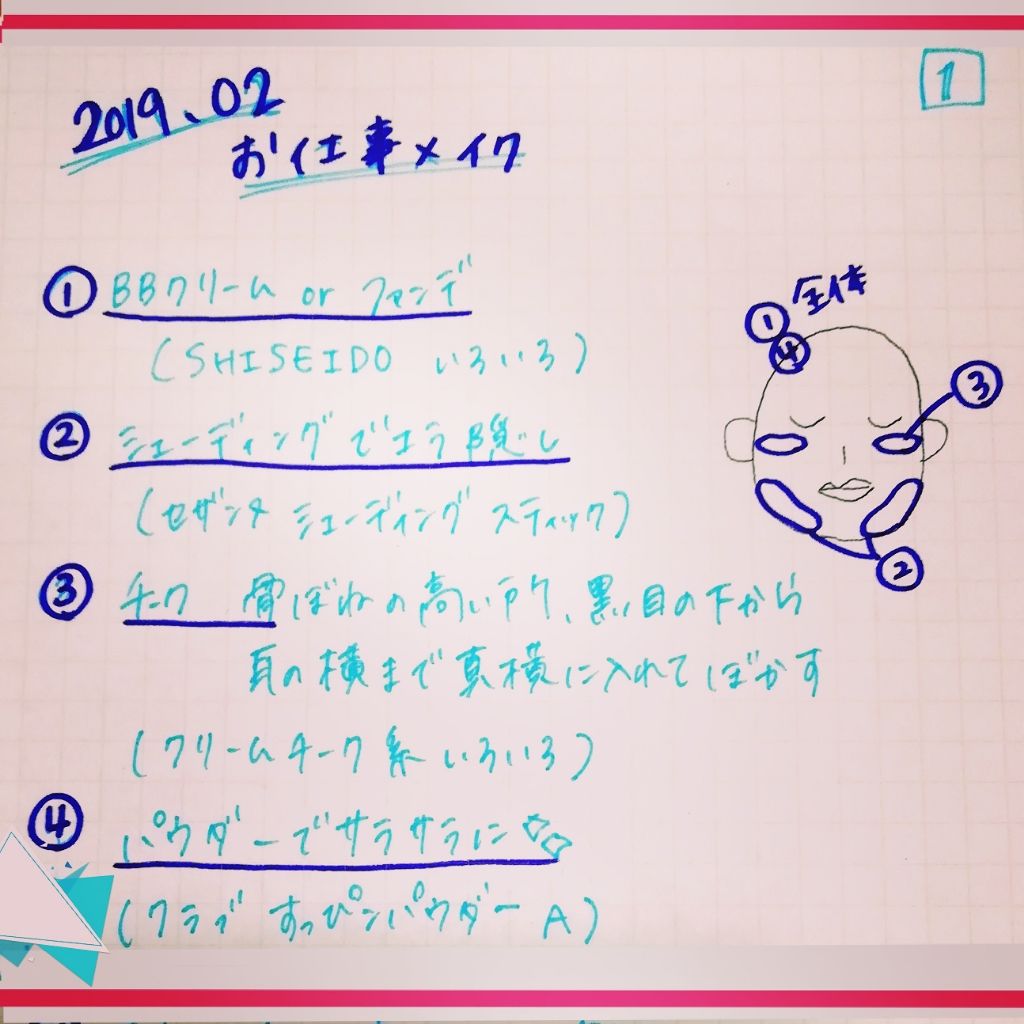 2019.02
お仕事メイク
1
① BBクリーム or ファンデ
(SHISEIDO いろいろ)
② シェーディングでエラ隠し
(セザンヌ シェーディング スティック)
③ チーク 骨ぼねの高い所、黒い目の下から
耳の横まで真横に入れてぼかす
(クリームチーク系 いろいろ)
④ パウダーでサラサラに
(クラブ すっぴんパウダー A)
① 全体
④
③
②